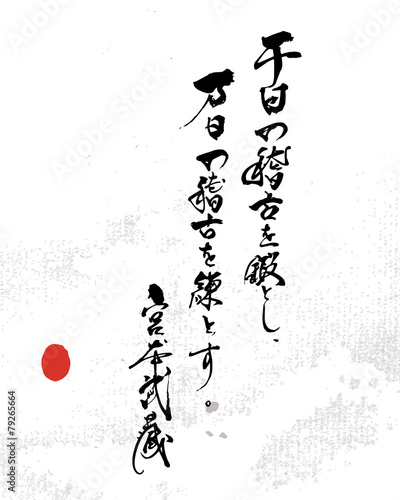 千日の稽古を鍛とし、
万日の稽古を錬とす。
宮本武蔵
Adobe Stock | #79265664